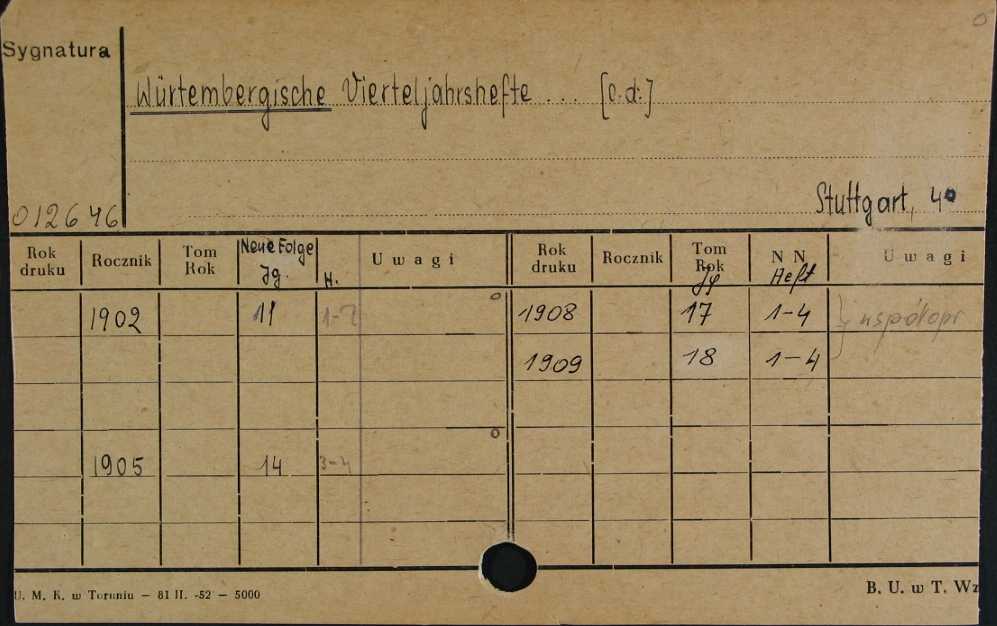 Sygnatura
Würtembergische Vierteljahrshefte ... [c.d.]
012646
Stuttgart, 4°
Rok druku Rocznik Tom Rok Neue Folge Jg. H. Uwagi Rok druku Rocznik Tom Rok Jg NN Heft Uwagi
1902 11 1-2 1908 17 1-4 współopr
1909 18 1-4
1905 14 3-4
U. M. K. w Toruniu — 81 II. -52 — 5000
B. U. w T. Wz